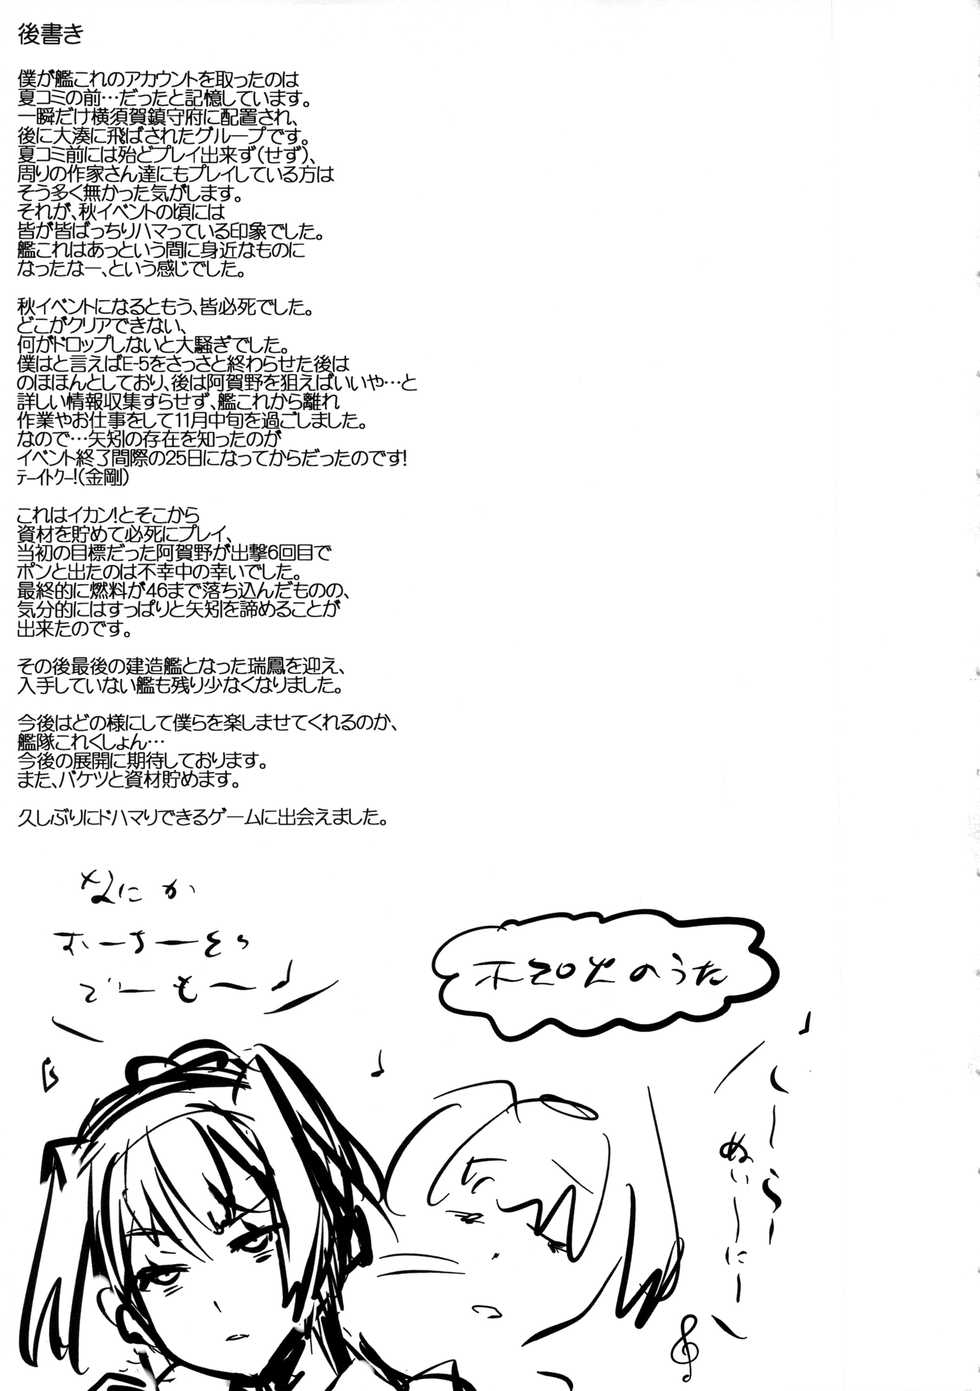 後書き
僕が艦これのアカウントを取ったのは
夏コミの前…だったと記憶しています。
一瞬だけ横須賀鎮守府に配置され、
後に大湊に飛ばされたグループです。
夏コミ前には殆どプレイ出来ず(せず)、
周りの作家さん達にもプレイしている方は
そう多く無かった気がします。
それが、秋イベントの頃には
皆が皆ばっちりハマっている印象でした。
艦これはあっという間に身近なものに
なったなー、という感じでした。
秋イベントになるともう、皆必死でした。
どこがクリアできない、
何がドロップしないと大騒ぎでした。
僕はと言えばE-5をさっさと終わらせた後は
のほほんとしており、後は阿賀野を狙えばいいや…と
詳しい情報収集すらせず、艦これから離れ
作業やお仕事をして11月中旬を過ごしました。
なので…矢矧の存在を知ったのが
イベント終了間際の25日になってからだったのです!
テートクー!(金剛)
これはイカン!とそこから
資材を貯めて必死にプレイ、
当初の目標だった阿賀野が出撃6回目で
ポンと出たのは不幸中の幸いでした。
最終的に燃料が46まで落ち込んだものの、
気分的にはすっぱりと矢矧を諦めることが
出来たのです。
その後最後の建造艦となった瑞鳳を迎え、
入手していない艦も残り少なくなりました。
今後はどの様にして僕らを楽しませてくれるのか、
艦隊これくしょん…
今後の展開に期待しております。
また、バケツと資材貯めます。
久しぶりにドハマりできるゲームに出会えました。
なにか
おーちーそら
でーもー〜♪
のうた
し〜ら〜
ぬい〜に〜